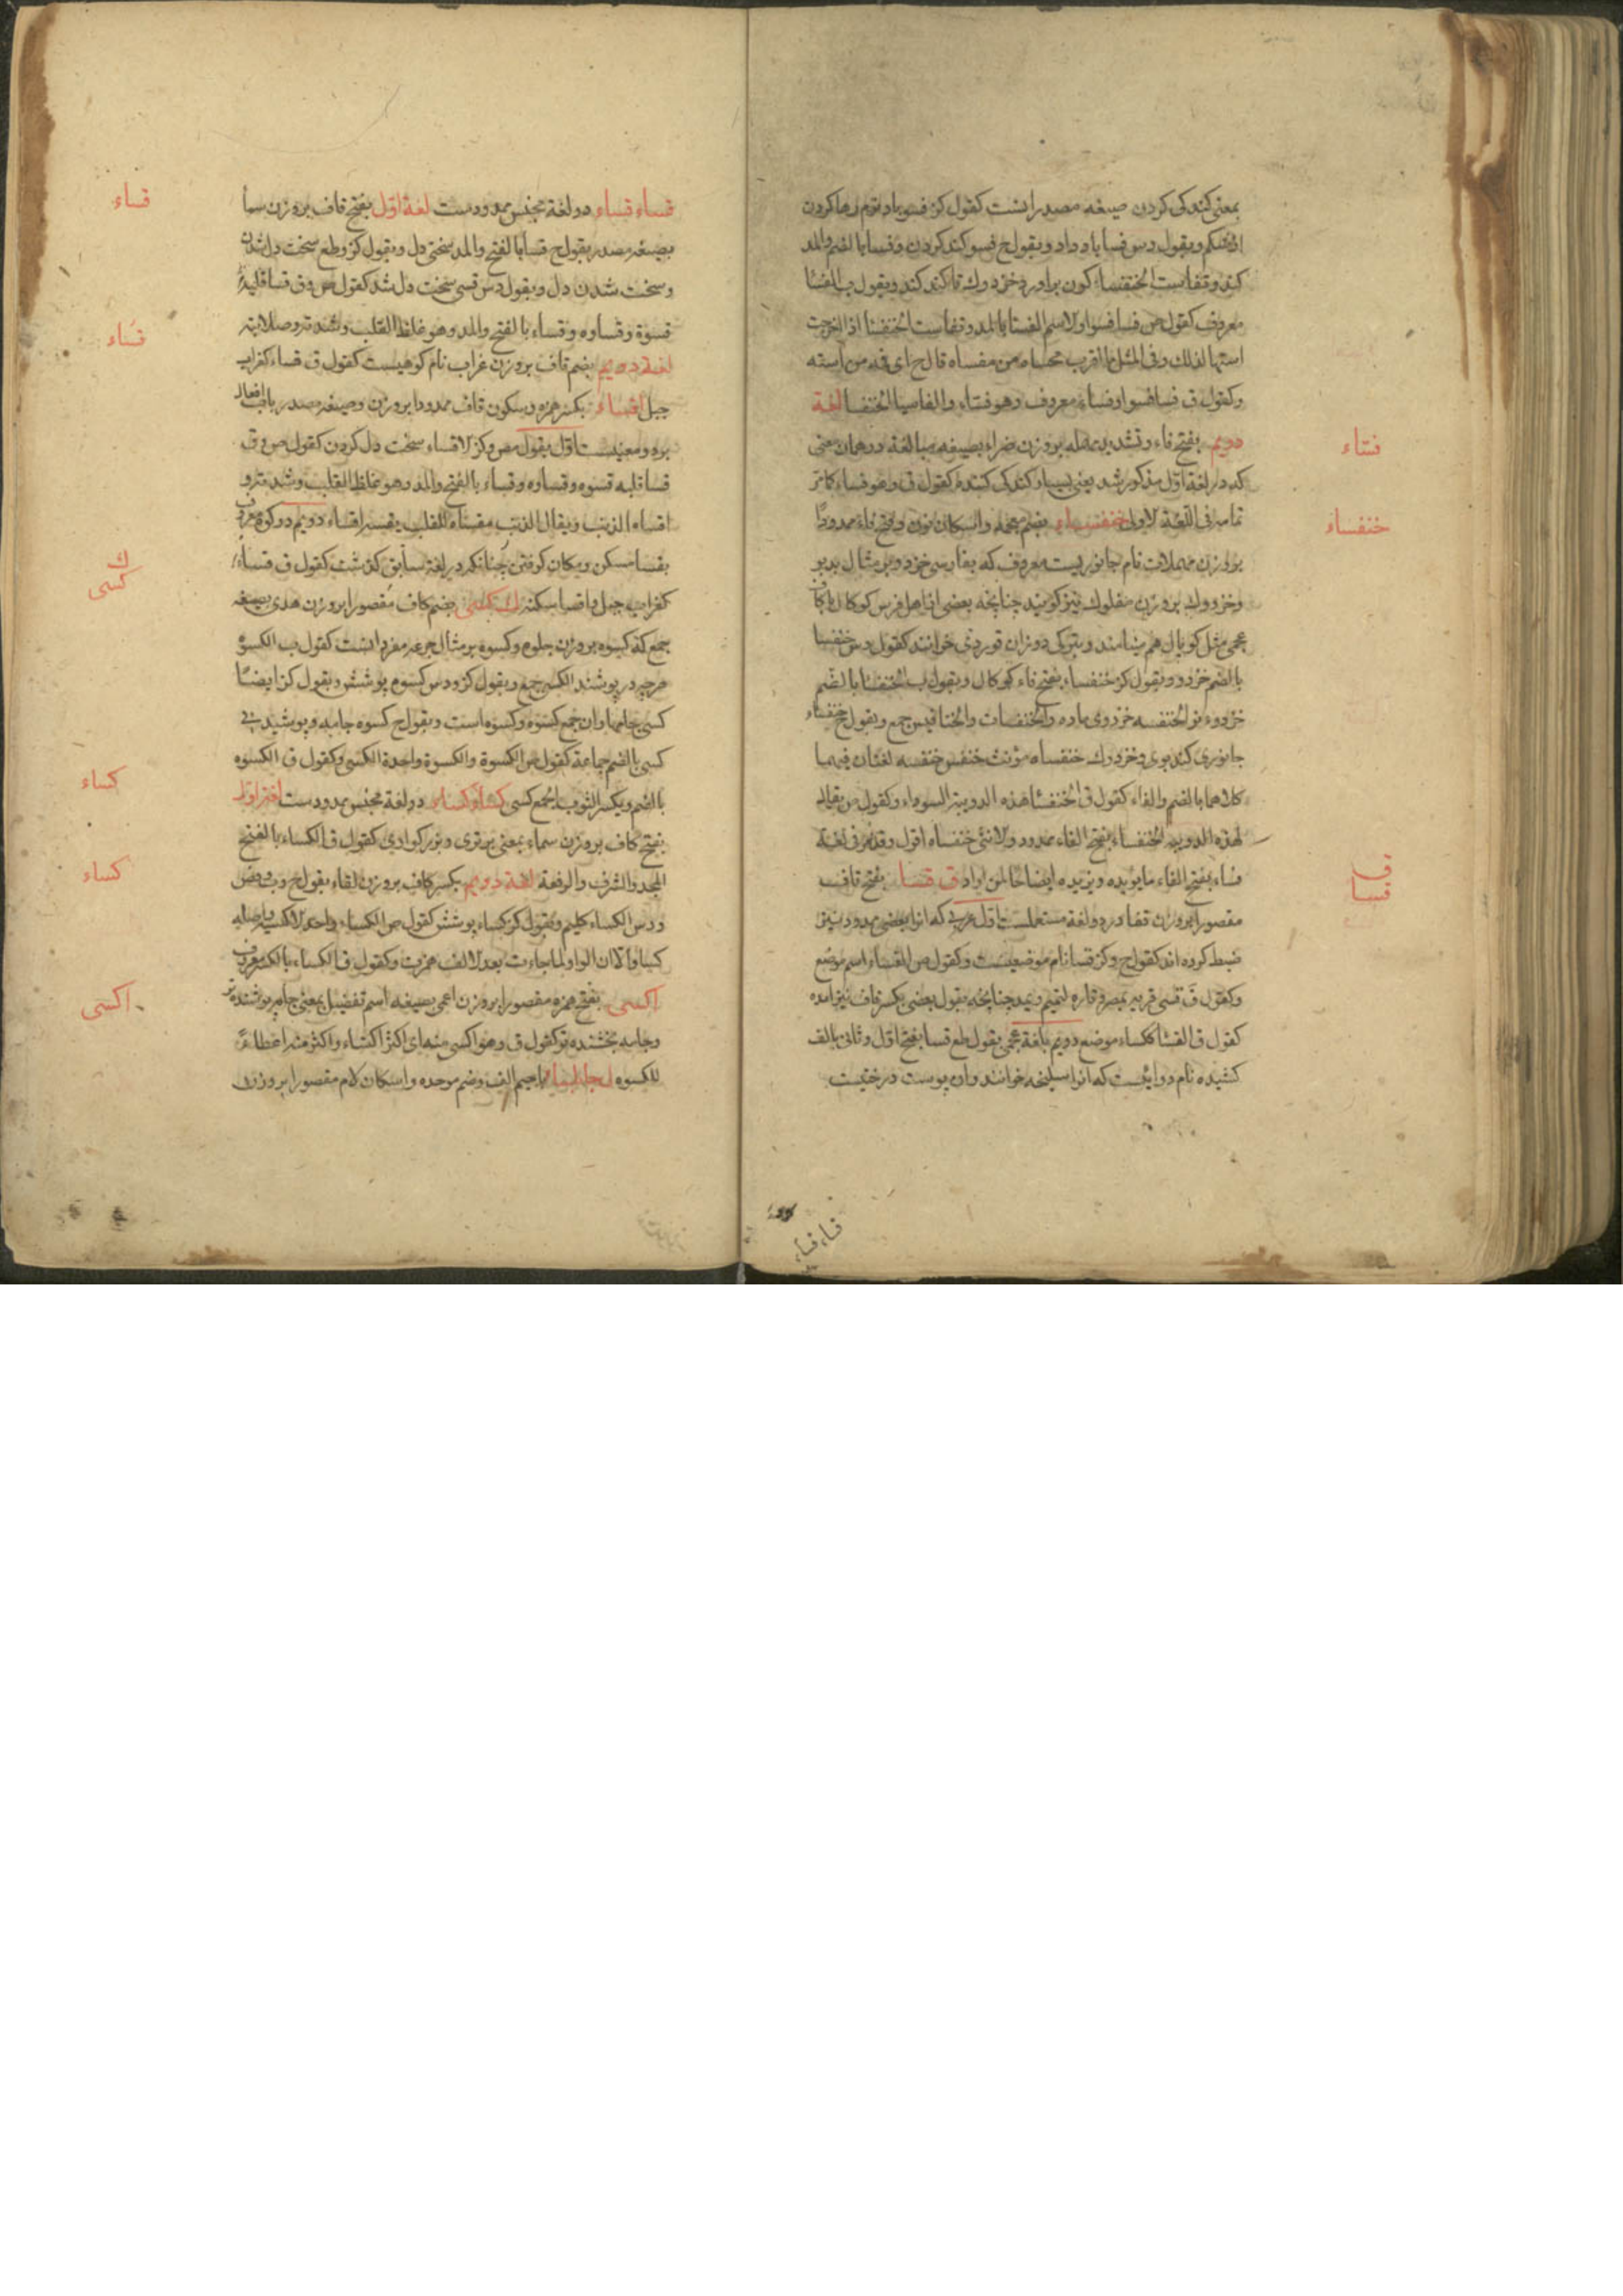 بمعنی کندکی کردن صیغه مصدرانست کقول کز فسو باد نرم رها کردن
از شکم ویقول دس فسا باد داد ویقول ح فسو کند کردن وفسا بالضم والمد
کند وتفاست الخنفساء کون براورد خزدوک تا کند کند ویقول ب الفسا
معروف کقول ص فسا فسوا والاسم الفسا بالمد وتفاست الخنفسا اذا اخرجت
استها لذلک وفی المثل ما اقرب محساه من مفساه قال ح ای فمه من استه
وکقول ق فسا فسوا وفساء معروف وهو فساء والفاسیا الخنفسا لغة
دویم بفتح فاء وتشدید مهمله بروزن ضراء بصیغه مبالغه ودرهمان معنی
که در لغة اول مذکور شد یعنی بسیار کندکی کننده کقول ق وهو فساء کما مر
تمامه فی اللغة الاولی خنفساء بضم معجمه واسکان نون وفتح فاء ممدودا
بوزن مهملات نام جانوریست معروف که بفارسی خزدو بر مثال بدبو
وخزدوک بروزن مفلوک نیز کویند چنانچه بعضی از اهل فرس کوکال با کاف
عجمی مثل کوپال هم مینامند وبترکی دونزان قوردی خوانند کقول دس خنفسا
بالضم خزدو ویقول کز خنفساء بفتح فاء کوکال ویقول ب الخنفسا بالضم
خزدوء نر الخنفسه خزدوی ماده والخنفسات والخنافیس جمع ویقول ح خنفساء
جانوری کنده بوی وخزدوک خنفساه مؤنث خنفس خنفسه لغتان فیهما
کلاهما بالضم والفاء کقول ق الخنفسا هذه الدویبة السوداء وکقول ص یقال
لهذه الدویبه الخنفساء بفتح الفاء ممدود والانثی خنفساه اقول وقد مر فی لغة
فساء بفتح الفاء ما یؤیده ویزیده ایضاحا لمن اراد ق قسا بفتح قاف
مقصورا بروزن قفا در دو لغة مستعملست اول عربی که انرا بعضی ممدود نیز
ضبط کرده اند کقول ح وکز قسا نام موضعیست وکقول ص القساء اسم موضع
وکقول ق قسی قریه بمصر وقاره لتمیم ویمد چنانچه بقول بعضی بکسر قاف نیز امده
کقول ق القسا ککساء موضع دویم بلغة عجمی بقول طع قسا بفتح اول وثانی بالف
کشیده نام دوائیست که انرا سلیخه خوانند وان پوست درختیست
فساء
خنفساء
ق
قسا
قساء قساء
قساء قساء دو لغة مجنس ممدودست لغة اول بفتح قاف بروزن سما
بصیغه مصدر یقول ح قسا بالفتح والمد سختی دل ویقول کز وطع سخت دل شدن
وسخت شدن دل ویقول دس قسی سخت دل شد کقول ص وق قسا قلبه
قسوة وقساوه وقساء بالفتح والمد وهو غلظ القلب وشدته وصلابته
لغة دویم بضم قاف بروزن غراب نام کوهیست کقول ق قساء کغراب
جبل اقساء بکسر همزه وسکون قاف ممدودا بروزن وصیغه مصدر باب افعال
بدو معنیست اول بقول ص وکز الاقساء سخت دل کردن کقول ص وق
قسا قلبه قسوه وقساوه وقساء بالفتح والمد وهو غلظ القلب وشدته و
اقساه الذنب ویقال الذنب مقساه للقلب یقسیه اقساء دویم در کوه معروف
بقسا مسکن ومکان کرفتن چنانکه در لغة سابق کذشت کقول ق قساء
کغراب جبل واقسا سکنه ک کسی بضم کاف مقصورا بروزن هدی بصیغه
جمع که کسوه بروزن جلوه وکسوه بر مثال جرعه مفرد انست کقول ب الکسوة
هرچه در پوشند الکسی جمع ویقول کز ودس کسوه پوشش ویقول کز ایضا
کسی جامها وان جمع کسوه وکسوه است ویقول ح کسوه جامه وپوشیدنی
کسی بالضم جماعة کقول ص الکسوة والکسوة واحدة الکسی وکقول ق الکسوه
بالضم ویکسر الثوب الجمع کسی کساء وکساء دو لغة مجنس ممدودست لغة اول
بفتح کاف بروزن سماء بمعنی برتری وبزرکواری کقول ق الکساء بالفتح
المجد والشرف والرفعة لغة دویم بکسر کاف بروزن لقاء بقول ح وب وض
ودس الکساء کلیم وبقول کز کساء پوشش کقول ص الکساء واحد الاکسیه واصله
کساو الا ان الواو لما جاءت بعد الالف همزت وکقول ق الکساء بالکسر معروف
اکسی بفتح همزه مقصورا بروزن اعمی بصیغه اسم تفضیل بمعنی جامه پوشنده تر
وجامه بخشنده تر کقول ق وهو اکسی منه ای اکثر اکتساء واکثر منه اعطاء
للکسوه ل جابلسا با جیم الف وضم موحده واسکان لام مقصورا بروزن
قساء
قساء
ک
کسی
کساء
کساء
اکسی